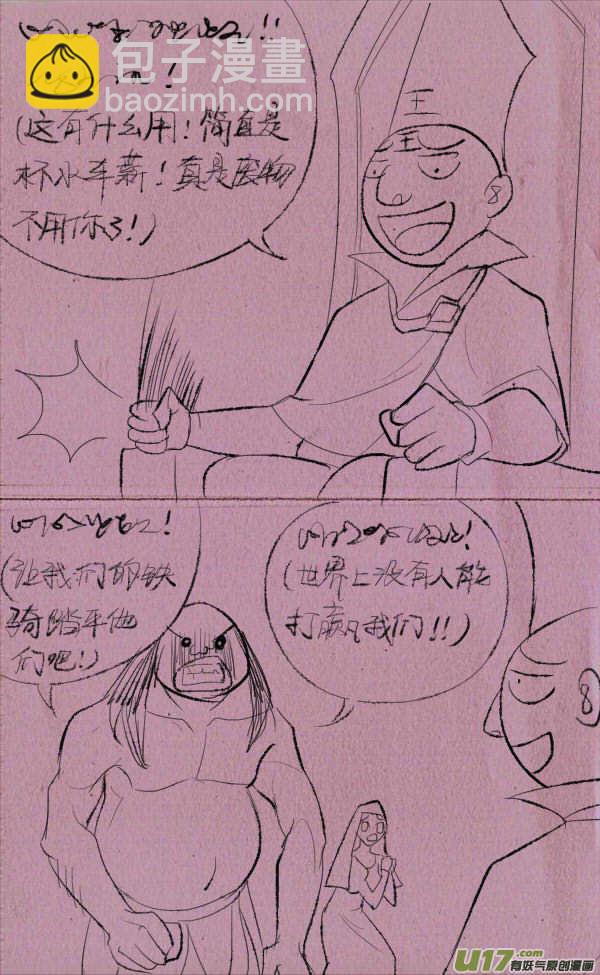 包子漫畫
baozimh.com
(这有什么用！简直是
杯水车薪！真是废物
不用你了！)
王
王
8
(让我们的铁
骑踏平他
们吧！)
(世界上没有人能
打赢我们！！)
8
U17.com
有妖气原创漫画